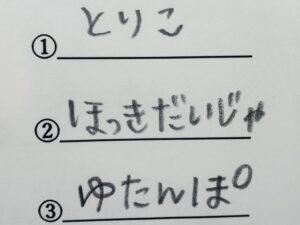 ① とりこ
② ほっきだいじゃ
③ ゆたんぽ